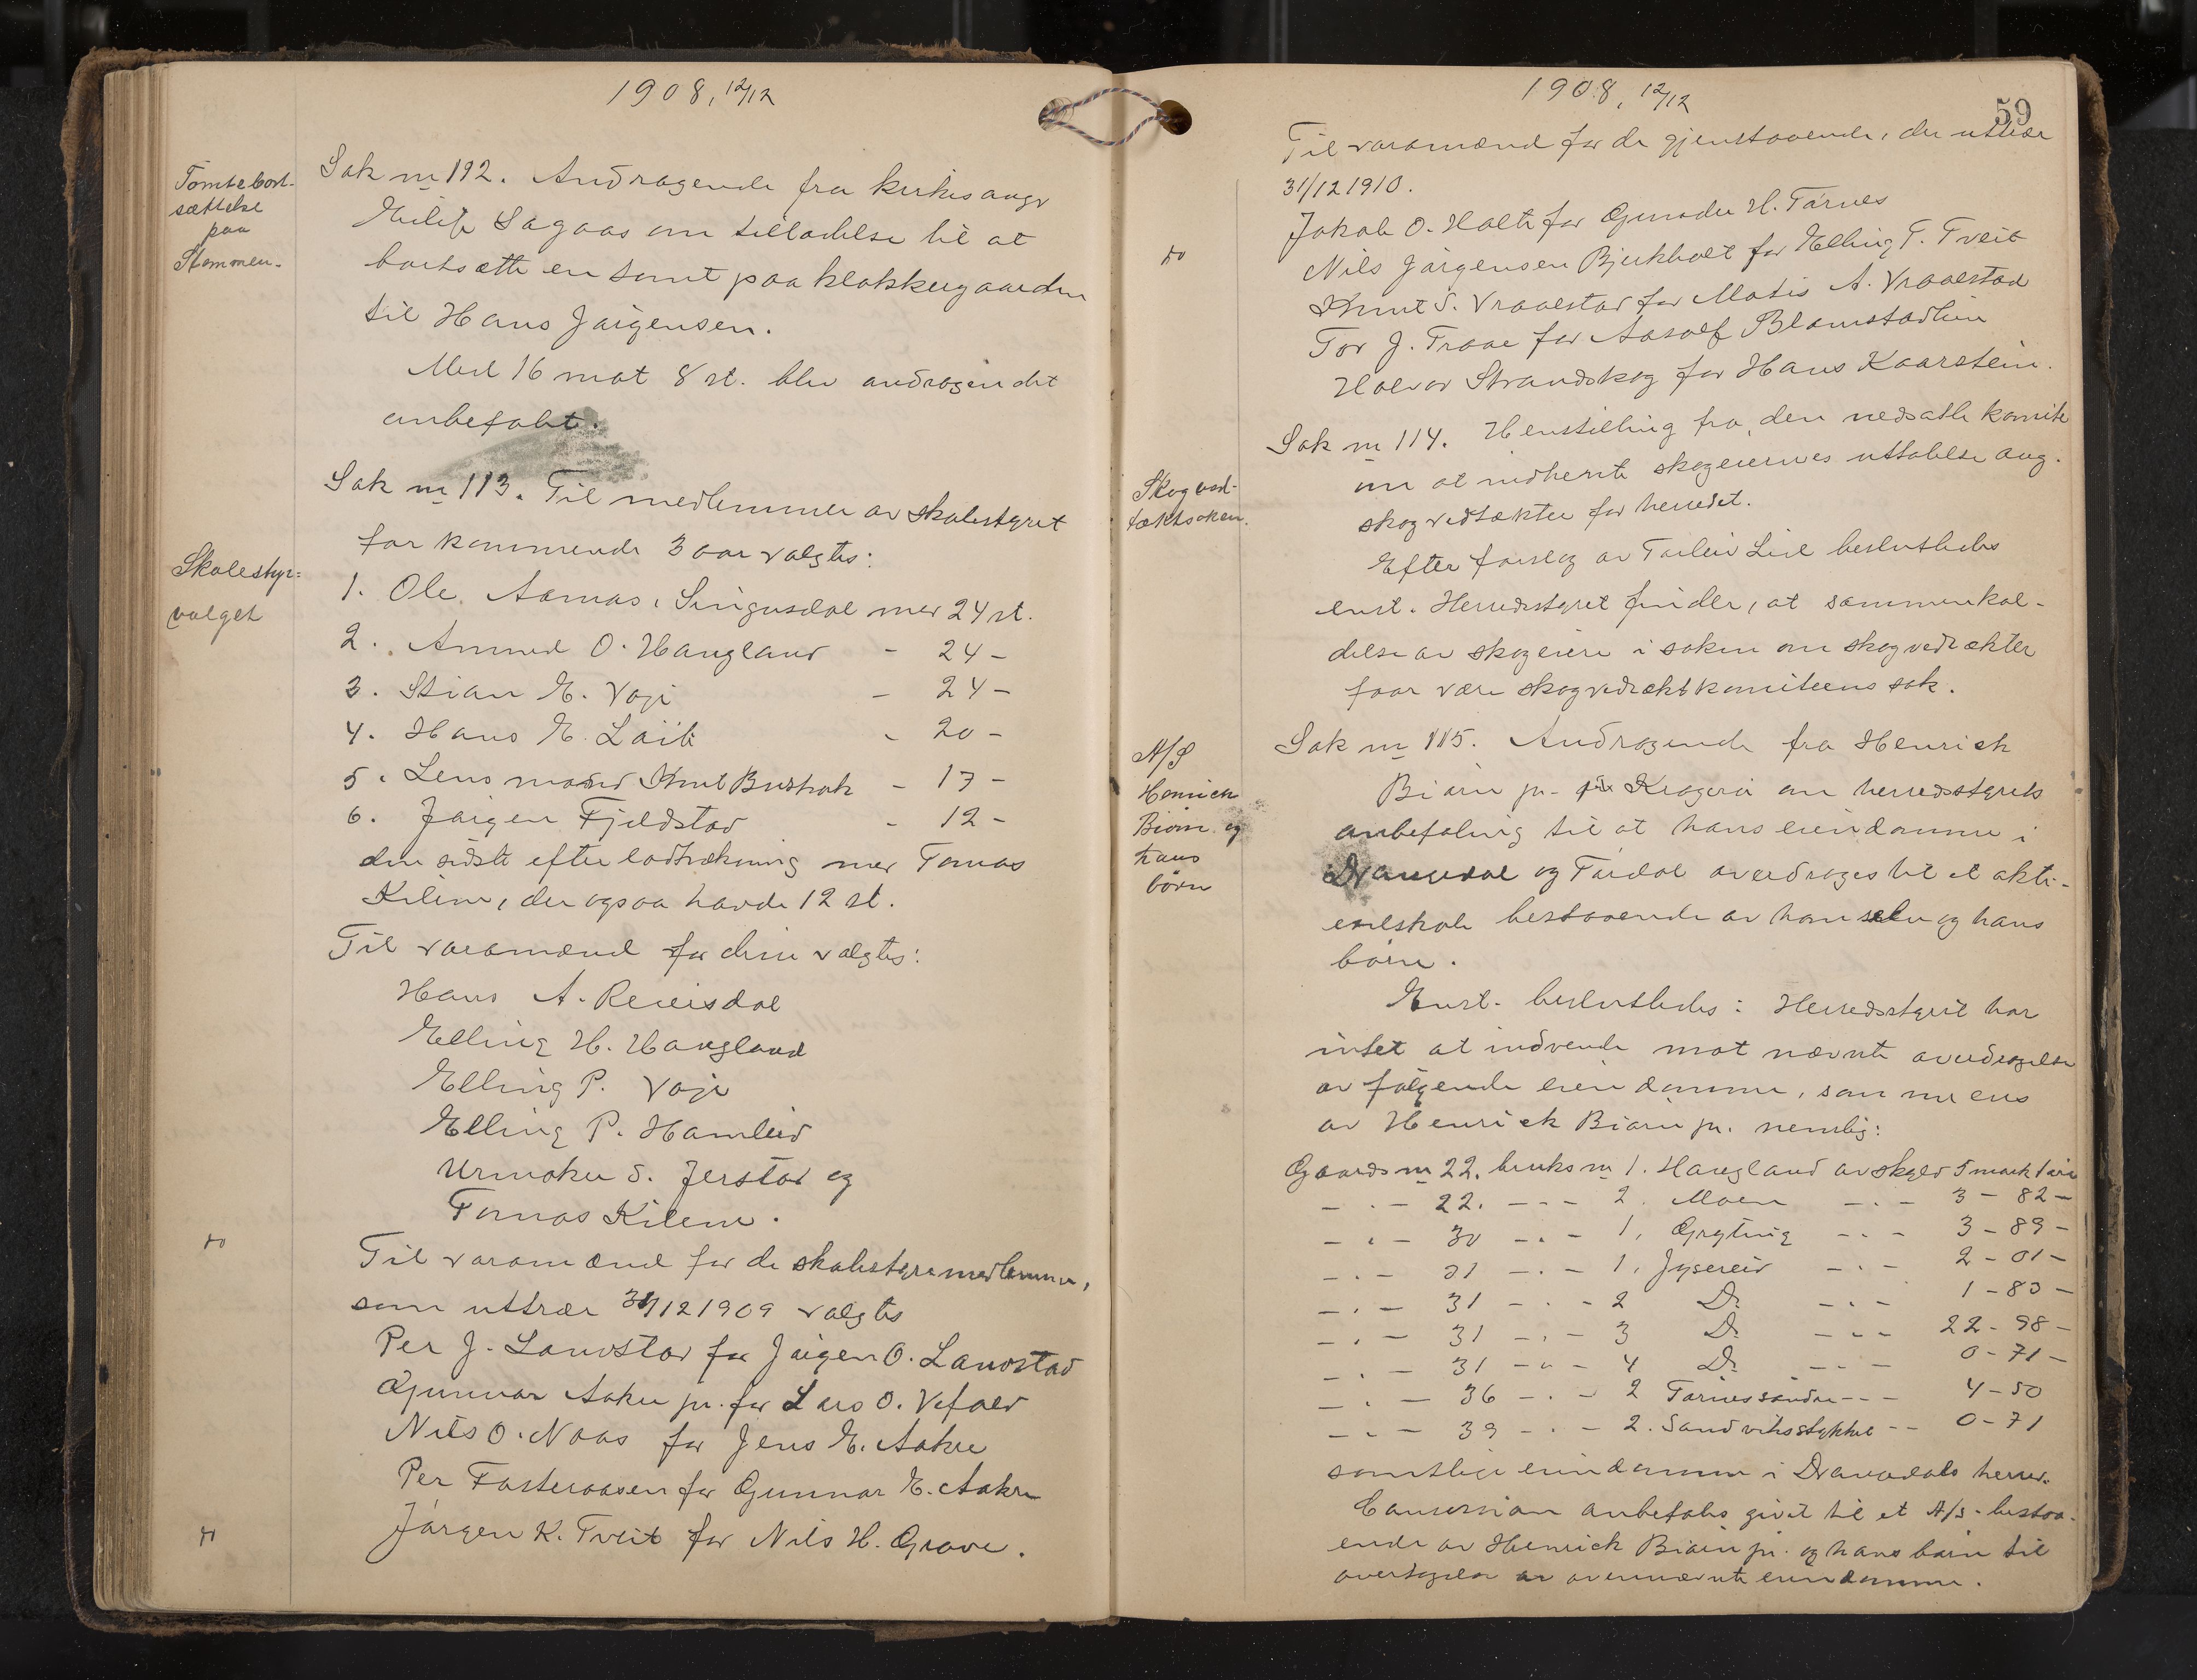 1908, 12/12
Tomtebort-
sættelse
paa
Stemmen.
Sak nr 112. Andragende fra kirkesangr
Eilif Sagaas om tilladelse til at
bortsætte en tomt paa klokkergaarden
til Hans Jørgensen.
Med 16 mot 8 st. blev andragendet
anbefalt.
Sak nr 113. Til medlemmer av skolestyret
for kommende 3 aar valgtes:
Skolestyr=
valget
1. Ole Aamaas, Singusdal med 24 st.
2. Amund O. Haugland - 24 -
3. Stian E. Voje - 24 -
4. Hans E. Løite - 20 -
5. Lensmand Knut Bustrak - 17 -
6. Jørgen Fjeldstad - 12 -
den sidste efter lodtrækning med Tomas
Kilene, der ogsaa havde 12 st.
Til varamænd for disse valgtes:
Hans A. Reiersdal
Elling H. Haugland
Elling P. Voje
Elling P. Hamleid
S. Jerstad og
Tomas Kilene.
do
Til varamænd for de skolestyremedlemmer,
som uttræer 31/12 1909 valgtes
Per J. Landstad for Jørgen O. Landstad
Gunnar Aakre jr. for Lars O. Vefald
Nils O. Naas for Jens E. Aakre
Per Fosteraasen for Gunnar E. Aakre
do
Jørgen K. Tveit for Nils H. Grave.
1908, 12/12
59
Til varamænd for de gjenstaaende, der uttræer
31/12 1910.
Jakob O. Holte for H. Tørnes
do
Nils Jørgensen Bjerkholt for Elling T. Tveit
Knut S. Vraalstad for Matis A. Vraalstad
Tor J. Traae for Aasolf Blamstadlien
Halvor Strandskog for Hans Kaarstein.
Sak nr 114. Henstilling fra den nedsatte komite
om at indhente skogeiernes uttalelse ang.
Skogved-
tæktsaken.
skogvedtækter for herredet.
Efter forslag av Tarleiv Lie besluttedes
enst. Herredsstyret finder, at sammenkal-
delse av skogeiere i saken om skogvedtækter
faar være skogvedtæktkomiteens sak.
A/S
Henrich
Biørn og
hans
børn
Sak nr 115. Andragende fra Henrich
Biørn jr. Kragerø om herredsstyrets
anbefaling til at hans eiendomme i
Drangedal og Tørdal overdrages til et akti-
eselskab bestaaende av ham selv og hans
børn.
Enst. besluttedes: Herredsstyret har
intet at indvende mot nævnte overdragelse
av følgende eiendomme, som nu eies
av Henrick Biørn jr. nemlig:
Gaards nr 22. bruks nr 1. Haugland av skyld 5 mark 1 øre
- . - 22. - . - 2. Moen - . - 3 - 82 -
- . - 30 - . - 1, Grytting - . - 3 - 89 -
- . - 31 - . - 1, Jysereid - . - 2 - 01 -
- . - 31 - . - 2 Do - . - 1 - 83 -
- . - 31 - . - 3 Do - . - 22 - 98 -
- . - 31 - . - 4 Do - . - 0 - 71 -
- . - 36 - . - 2 Tørnes søndre - . - 4 - 50
- . - 39 - . - 2. Sandviksstykket - - 0 - 71
samtlige eiendomme i Drangedals herred.
Concession anbefales givet til et A/S. bestaa-
ende av Henrick Biørn jr. og hans børn til
overtagelse av ovennævnte eiendomme.